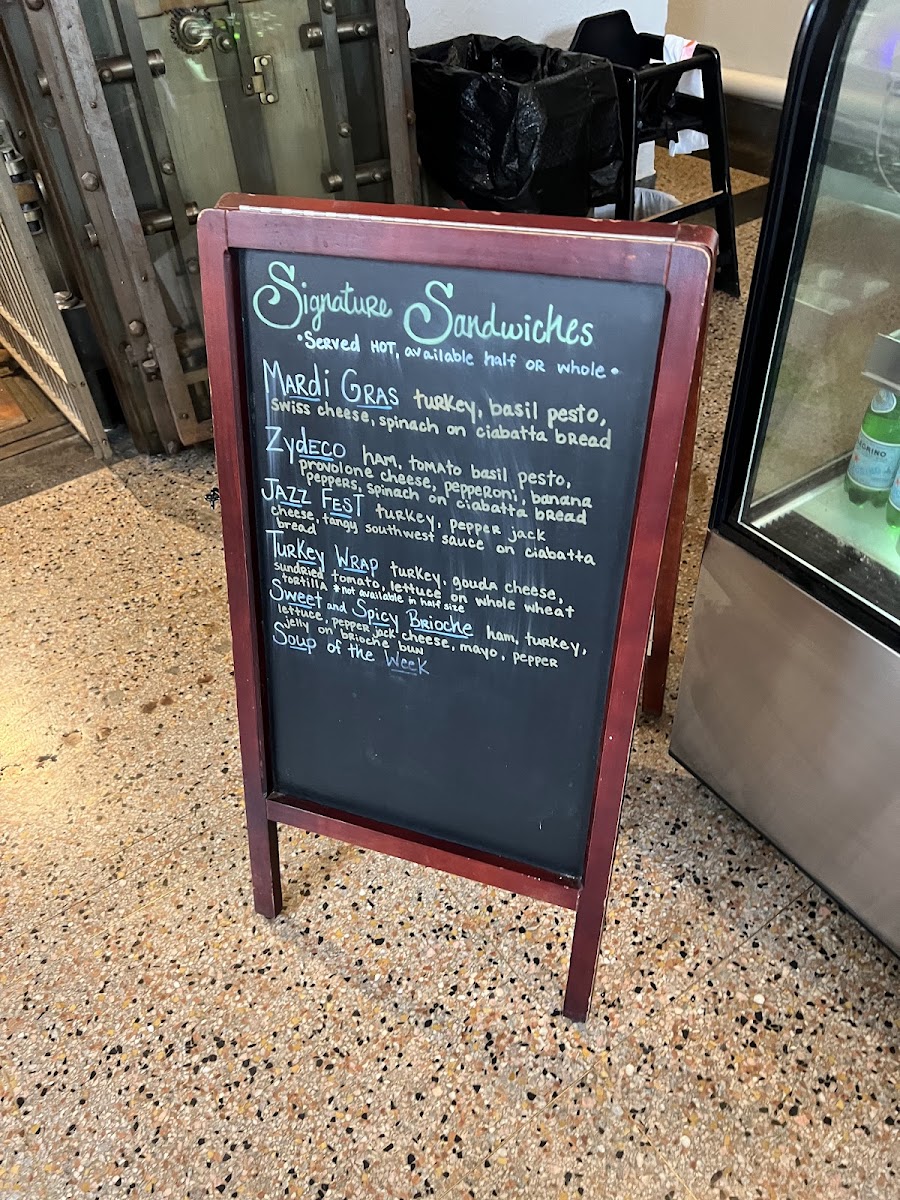 Signature Sandwiches
•Served HOT, available half OR whole•
Mardi Gras turkey, basil pesto,
swiss cheese, spinach on ciabatta bread
Zydeco ham, tomato basil pesto,
provolone cheese, pepperoni, banana
peppers, spinach on ciabatta bread
Jazz Fest turkey, pepper jack
cheese, tangy southwest sauce on ciabatta
bread
Turkey Wrap turkey, gouda cheese,
sundried tomato, lettuce on whole wheat
tortilla *not available in half size
Sweet and Spicy Brioche ham, turkey,
lettuce, pepper jack cheese, mayo, pepper
jelly on brioche bun
Soup of the Week